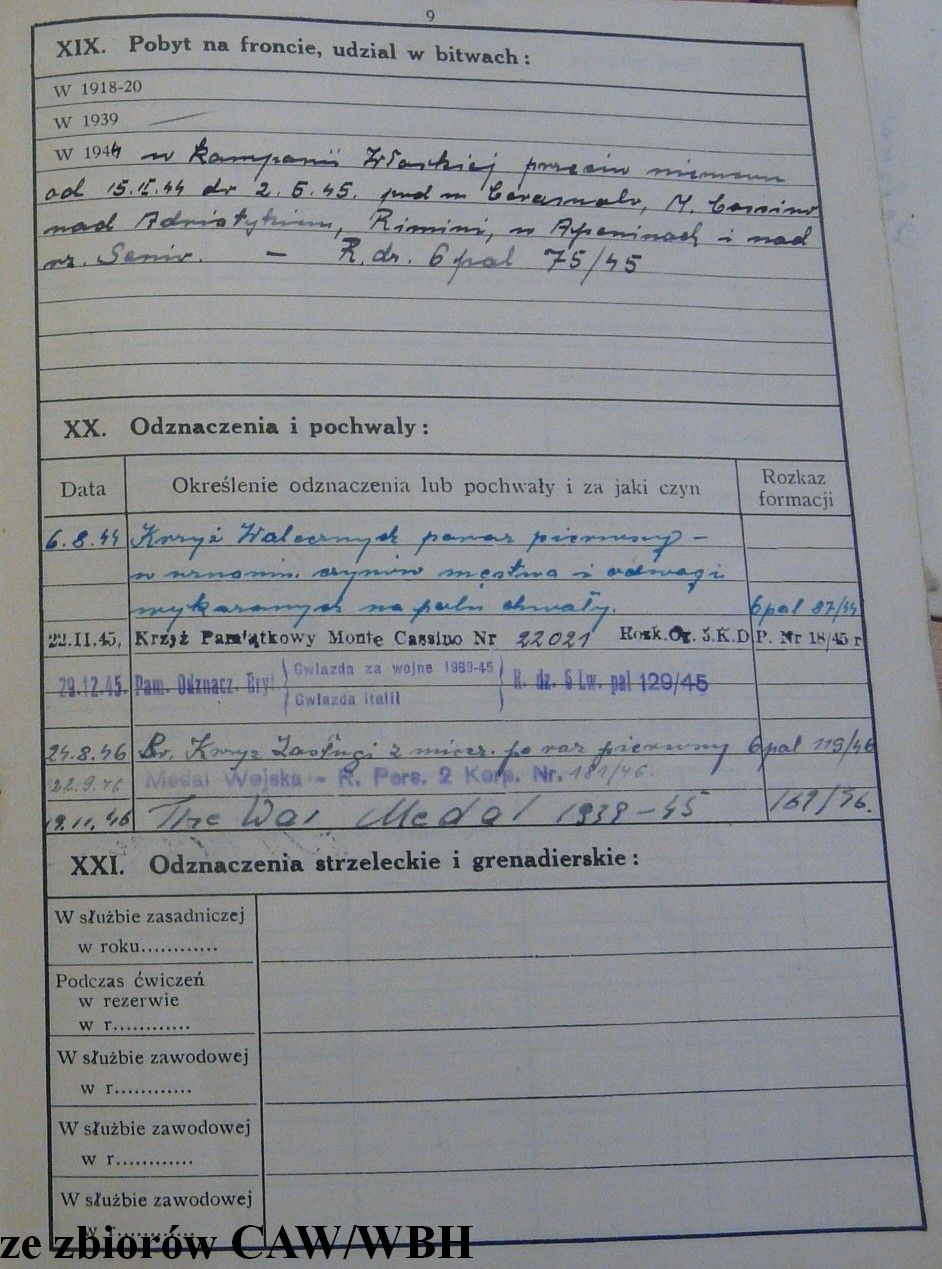 9
XIX. Pobyt na froncie, udzial w bitwach :
W 1918-20
W 1939
W 1944 w kampanii Włoskiej przeciw niemcom
od 15.II.44 do 2.5.45. pod m Cerasuolo, M. Cassino
nad Adriatykiem, Rimini, w Apeninach i nad
rz. Senio. — R. dz. 6 pal 75/45
XX. Odznaczenia i pochwaly :
Data Określenie odznaczenia lub pochwały i za jaki czyn Rozkaz formacji
6.8.44 Krzyż Walecznych poraz pierwszy –
w uznaniu. czynów męstwa i odwagi
wykazanych na polu chwały. 6 pal 87/44
22.II.45, Krzyż Pamiątkowy Monte Cassino Nr 22021 Rozk.Og. 5.K.D.P. Nr 18/45 r
29.12.45. Pam. Odznacz. Bryt Gwiazda za wojne 1939-45 R. dz. 6 Lw. pal 129/45
Gwiazda Italii
24.8.46 Br. Krzyż Zasługi z miecz. po raz pierwszy 6 pal 119/46
22.9.46 Medal Wojska – R. Pers. 2 Korp. Nr. 181/46.
19.11.46 The War Medal 1939–45 169/46.
XXI. Odznaczenia strzeleckie i grenadierskie :
W służbie zasadniczej
w roku............
Podczas ćwiczeń
w rezerwie
w r............
W służbie zawodowej
w r............
W służbie zawodowej
w r............
W służbie zawodowej
w r............
ze zbiorów CAW/WBH